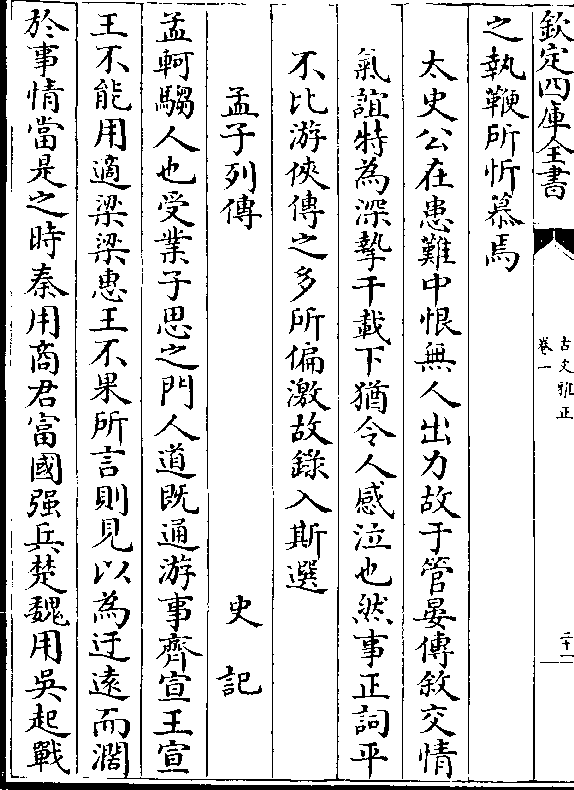 欽定四庫全書
古文雅正
卷一
二十一
之執鞭所忻慕焉
太史公在患難中恨無人出力故于管晏傳敘交情
氣誼特為深摯千載下猶令人感泣也然事正詞平
不比游俠傳之多所偏激故錄入斯選
孟子列傳 史記
孟軻騶人也受業子思之門人道既通游事齊宣王宣
王不能用適梁梁惠王不果所言則見以為迂遠而濶
於事情當是之時秦用商君富國强兵楚魏用吳起戰